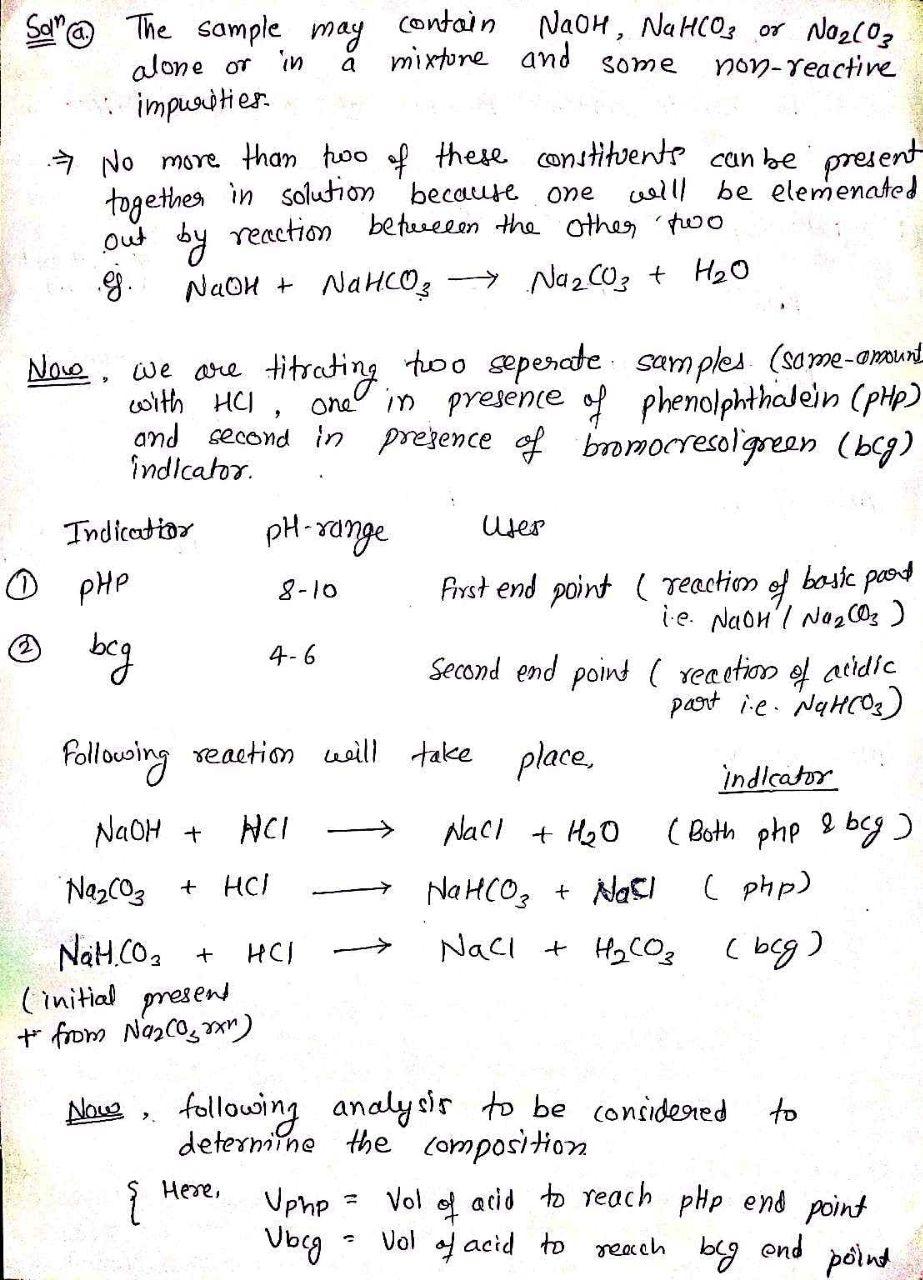 Solⁿ ⓐ. The sample may contain NaOH, NaHCO₃ or Na₂CO₃
alone or in a mixture and some non-reactive
impurities.
⇒ No more than two of these constituents can be present
together in solution because one will be elemenated
out by reaction betweeen the other two
eg. NaOH + NaHCO₃ → Na₂CO₃ + H₂O
Now, we are titrating two seperate samples (same-amount
with HCl, one in presence of phenolphthalein (pHp)
and second in presence of bromocresolgreen (bcg)
indicator.
Indicatior pH-range Uses
① pHP 8-10 First end point (reaction of basic part
i.e. NaOH / Na₂CO₃)
② bcg 4-6 Second end point (reaction of acidic
part i.e. NaHCO₃)
Following reaction will take place,
indicator
NaOH + HCl → NaCl + H₂O (Both php & bcg)
Na₂CO₃ + HCl → NaHCO₃ + NaCl (php)
NaHCO₃ + HCl → NaCl + H₂CO₃ (bcg)
(initial present
+ from Na₂CO₃ rxn)
Now, following analysis to be considered to
determine the composition
{ Here, Vphp = Vol of acid to reach pHp end point
Vbcg = Vol of acid to reach bcg end point